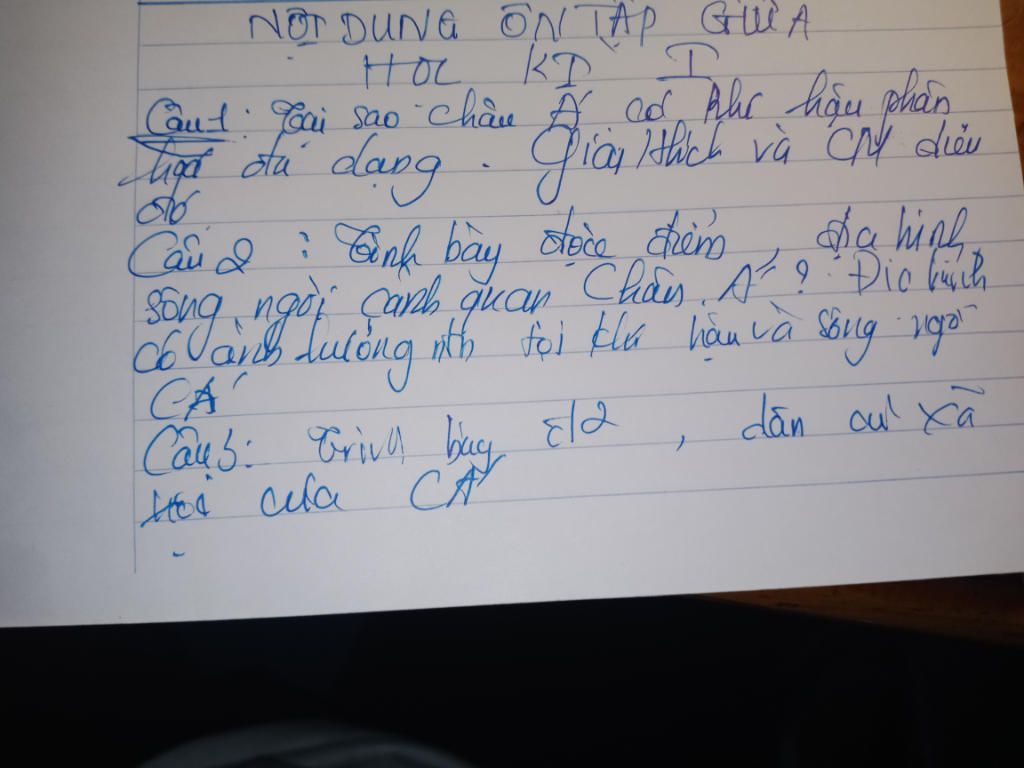 NỘI DUNG ÔN TẬP GIỮA
HỌC KÌ I
Câu 1: Tại sao Châu Á có khí hậu phân
hoá đa dạng. Giải thích và CM điều
đó
Câu 2: Trình bày đặc điểm, địa hình,
sông ngòi cảnh quan Châu Á? Địa hình
có ảnh hưởng nth tới khí hậu và sông ngòi
CÁ
Câu 3: Trình bày dân cư xã
hội của CÁ